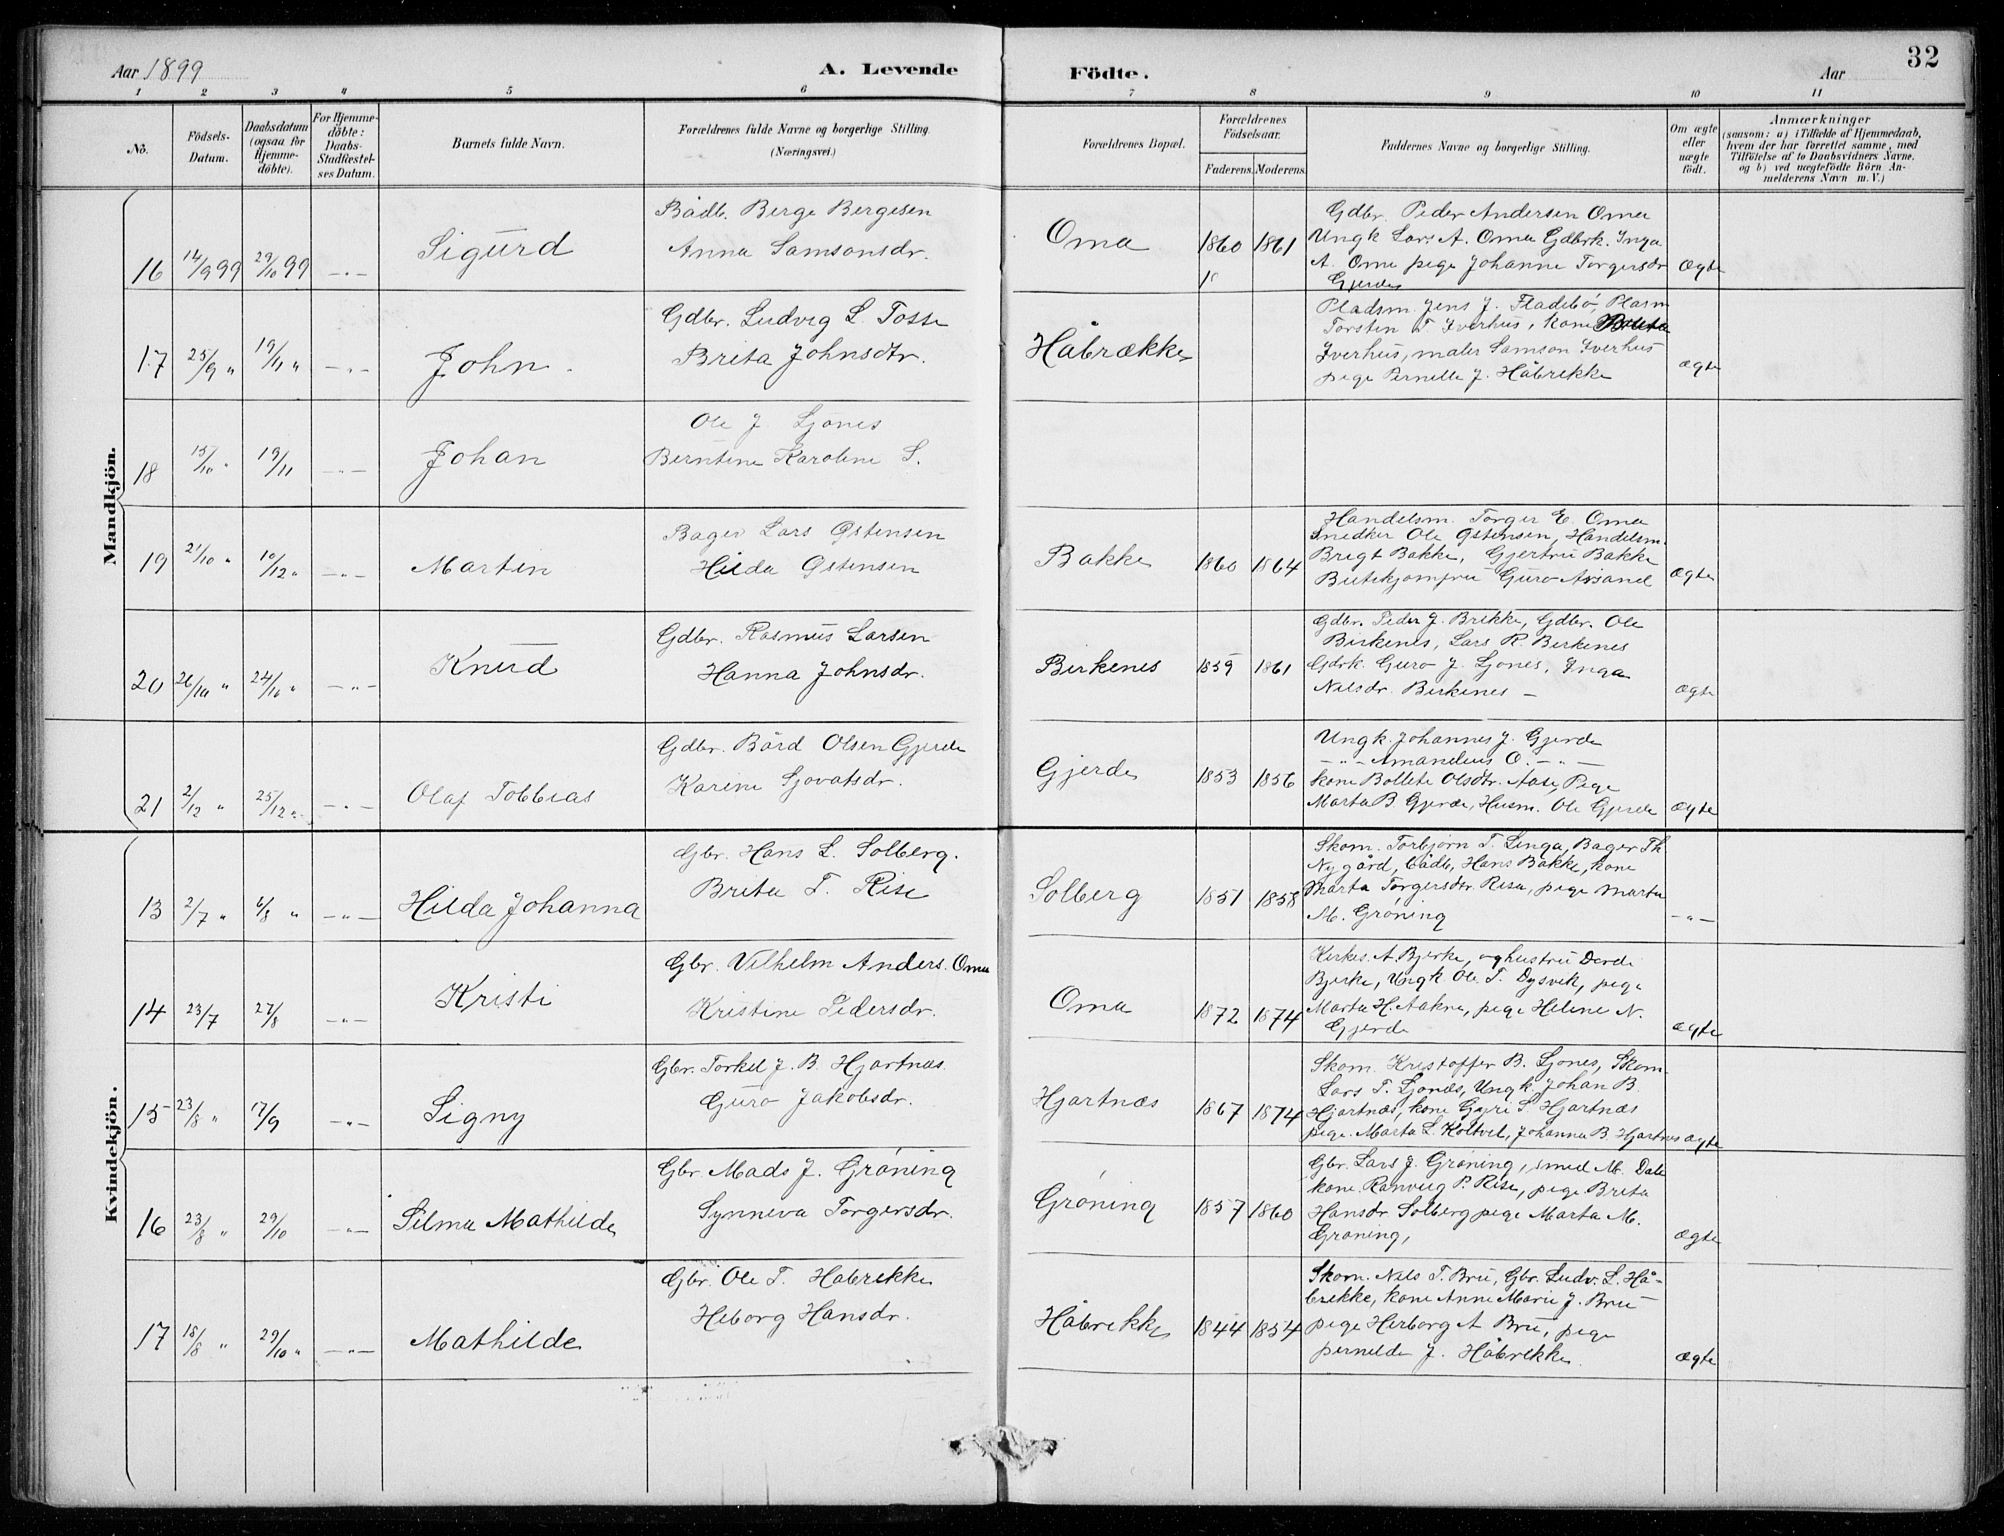 Aar 1899
A. Levende
Födte.
Aar
32
1 2 3 4 5 6 7 8 9 10 11
No.
Födsels-Datum.
Daabsdatum (ogsaa for Hjemme-döbte).
For Hjemme-döbte: Daabs-Stadfæstel-ses Datum.
Barnets fulde Navn.
Forældrenes fulde Navne og borgerlige Stilling. (Næringsvei.)
Forældrenes Bopæl.
Forældrenes Födselsaar.
Faderens. Moderens.
Faddernes Navne og borgerlige Stilling.
Om ægte eller uægte födt.
Anmærkninger
(saasom: a) i Tilfælde af Hjemmedaab, hvem der har forrettet samme, med Tilföielse af to Daabsvidners Navne, og b) ved uægtefödte Börn An-melderens Navn m. V.)
Mandkjön.
16 14/9 99 29/10 99 -"- Sigurd
Bådb. Berge Bergesen
Anna Samsonsdr.
Oma 1860 1861
Gdbr. Peder Andersen Oma
Ungk Lars A. Oma Gdbrk. Inga
A. Oma pege Johanne Torgersdr
Gjerde
ægte
17 25/9 " 19/11 " -"- John.
Gdbr. Ludvig L. Tosse
Brita Johnsdtr.
Håbrække
Pladsm. Jens J. Fladebö, Plasm
Torsten T Iverhus, kone
Iverhus, maler Samson Iverhus
pege Pernelle J. Håbrekke
ægte
18 15/10 " 19/11 -"- Johan
Ole J Ljones
Berntine Karoline S.
19 21/10 " 10/12 " -"- Martin
Bager Lars Østensen
Hilda Østensen
Bakke 1860 1864
Handelsm. Torger E. Oma
Snedker Ole Østensen, Handelsm.
Bregt Bakke, Gjertru Bakke
Butikjomfru Guro Aisand
ægte
20 26/10 " 24/10 " -"- Knud
Gdbr. Rasmus Larsen
Hanna Johnsdr.
Birkenes 1859 1861
Gdbr. Peder J. Brekke, Gdbr. Ole
Birkenes, Lars R. Birkenes
Gdrk. Guro J. Ljones, Inga
Nilsdr. Birkenes -
ægte
21 2/12 " 25/12 " -"- Olaf Tobbias
Gdbr. Bård Olsen Gjerde
Karine Sjovatsdr.
Gjerde 1853 1856
Ungk. Johannes J. Gjerde
-"- Amandus O. -"-
kone Bollete Olsdtr. Aase, Pege
Marta B Gjerde, Husm. Ole Gjerde
ægte
Kvindekjön.
13 2/7 " 6/8 " -"- Hilda Johanna
Gbr. Hans L. Solberg.
Brita T. Rise
Solberg 1851 1858
Skom. Torbjørn T. Linga, Bager Th
Nygård, bådb, Hans Bakke, kone
Marta Torgersdtr Risa, pege Marta
M. Grøning
-"-
14 23/7 27/8 -"- Kristi
Gbr. Vilhelm Anders. Oma
Kristine Pedersdr.
Oma 1872 1874
Kirkes. A. Bjerke, og hustru Dorde
Bjerke, Ungk Ole T. Dysvik, pege
Marta H. Aakne, pege Helene N.
Gjerde
ægte
15 23/8 " 17/9 -"- Signy
Gbr. Torkel J. B. Hjartnæs
Guro Jakobsdr.
Hjartnæs 1867 1874
Skom. Kristoffer B. Ljones, Skom.
Lars T. Ljonæs, Ungk. Johan B.
Hjartnæs, kone Gyri S. Hjartnæs
pege. Marta L. Koltvet, Johanna B. Hjartnes
ægte
16 23/8 " 29/10 -"- Selma Mathilde
Gbr. Mads J. Grøning
Synneva Torgersdr.
Grøning 1857 1860
Gbr. Lars J. Grøning, smed M. Dale
kone. Ranveig P. Rise, pege Brita
Hansdr Solberg pege Marta M.
Grøning,
ægte
17 18/8 " 29/10 " -"- Mathilde
Gbr. Ole T. Håbrekke
Heborg Hansdr.
Håbrekke 1844 1854
Skom. Nils T. Bru, Gbr. Ludv. L. Hå-
brekke, kone Anne Marie J. Bru
pege Herborg A Bru, pege
pernelde J. Håbrekke.
ægte